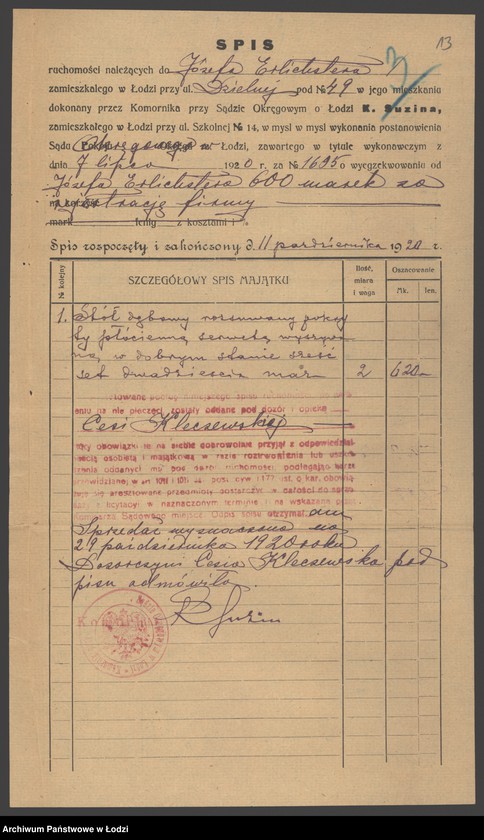 13
3
SPIS
ruchomości należących do Józefa Erlichstera
zamieszkałego w Łodzi przy ul. Dzielnej pod № 49 w jego mieszkaniu
dokonany przez Komornika przy Sądzie Okręgowym o Łodzi K. Suzina,
zamieszkałego w Łodzi przy ul. Szkolnej № 14, w myśl w myśl wykonania postanowienia
Sądu Okręgowego w Łodzi, zawartego w tytule wykonawczym z
dnia 7 lipca 1920 r. za № 1695 o wyegzekwowanie od
Józefa Erlichstera 600 marek za
rejestrację firmy
mark fenig z kosztami i %
Spis rozpoczęty i zakończony d. 11 października 1920 r.
№ kolejny
SZCZEGÓŁOWY SPIS MAJĄTKU
Ilość, miara i waga
Oszacowanie
Mk. fen.
1. Stół dębowy rozsuwany pokry
ty płócienną serwetą wyszywa
ną w dobrym stanie sześć
set dwadzieścia mar. 2 620 —
eniu na nie pieczęci zostały oddane pod dozór i opiekę
Cesi Kleczewskiej
który obowiązki te na siebie dobrowolnie przyjął z odpowiedzial
nością osobistą i majątkową w razie roztrwonienia lub uszko
dzenia oddanych mu pod dozór ruchomości, podlegając karze
przewidzianej w art. post. cyw. i 1177 ust. o kar. obowią
zuje się aresztowane przedmioty dostarczyć w całości do sprze
daży z licytacji w naznaczonym terminie i na wskazane przez
Komornika Sądowego miejsce. Odpis spisu otrzymał
Sprzedaż wyznaczona na
29 października 1920 roku
Dozorczyni Cesia Kleczewska pod
pisu odmówiła.
K. Suzin
Komornik
Archiwum Państwowe w Łodzi